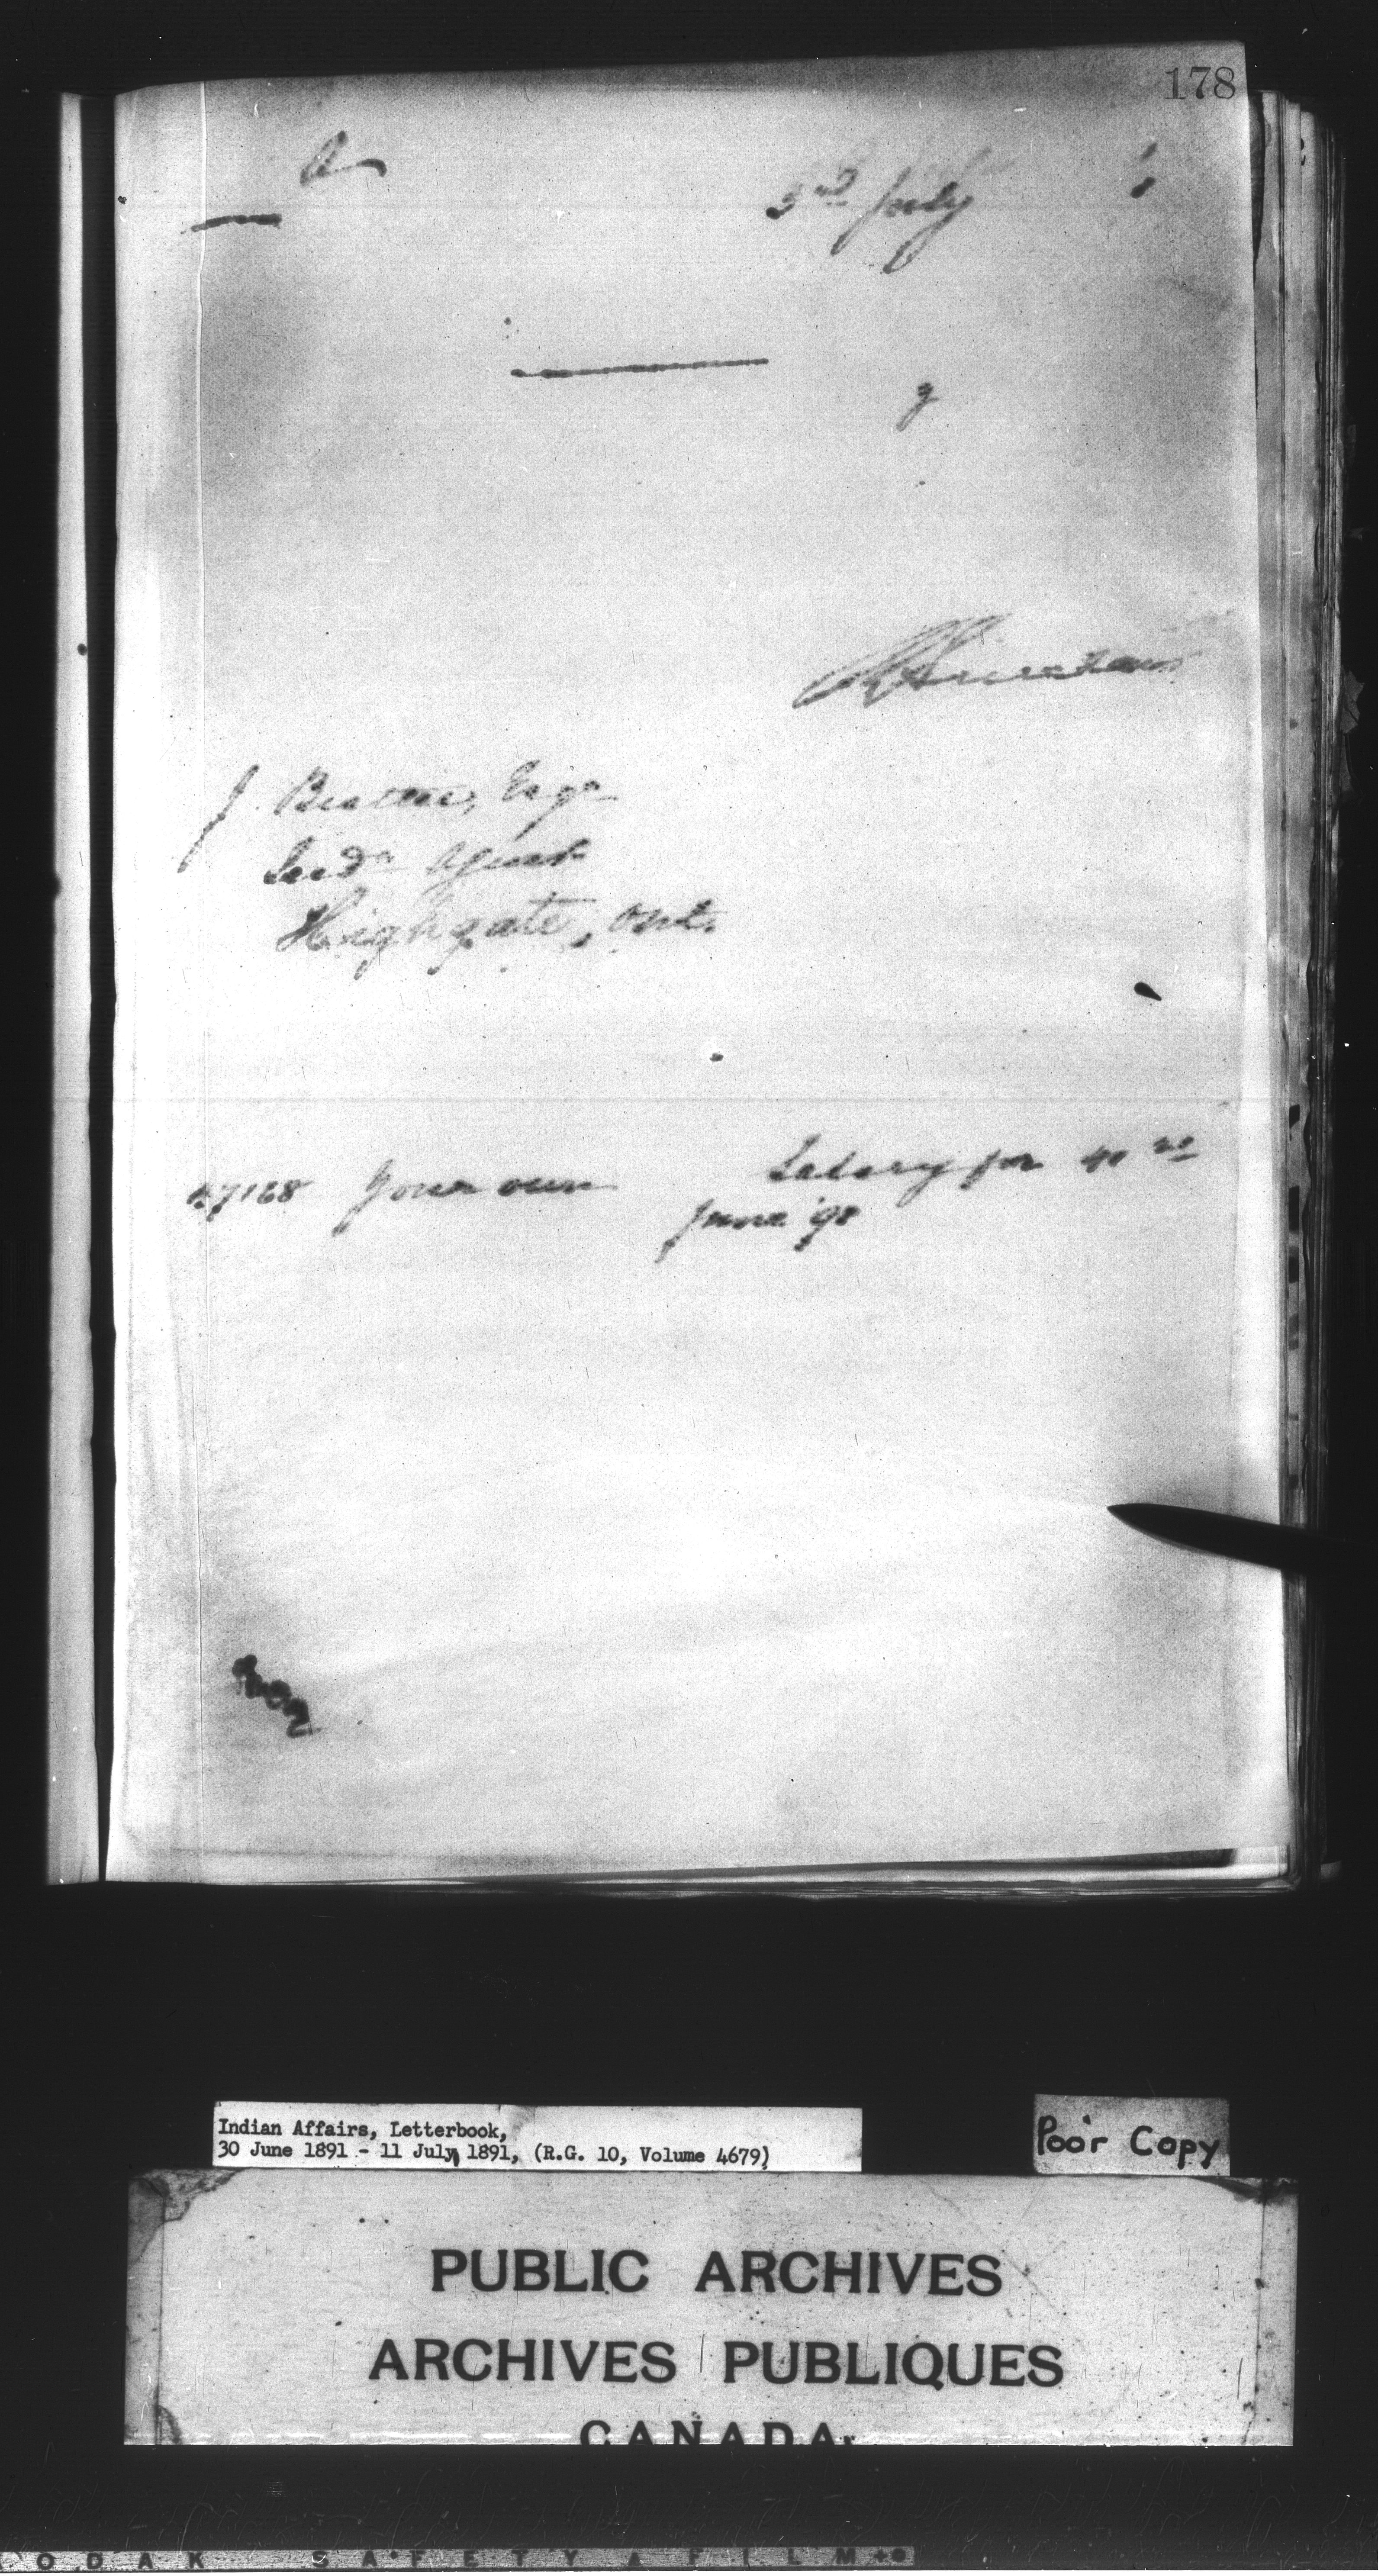 178
3rd July
J. Beattie, Esqr
Indn Agent
Highgate, Ont.
Your own Salary for
June '98
Indian Affairs, Letterbook,
30 June 1891 - 11 July, 1891, (R.G. 10, Volume 4679)
Poor Copy
PUBLIC ARCHIVES
ARCHIVES PUBLIQUES
CANADA
ODAK SAFETY FILM